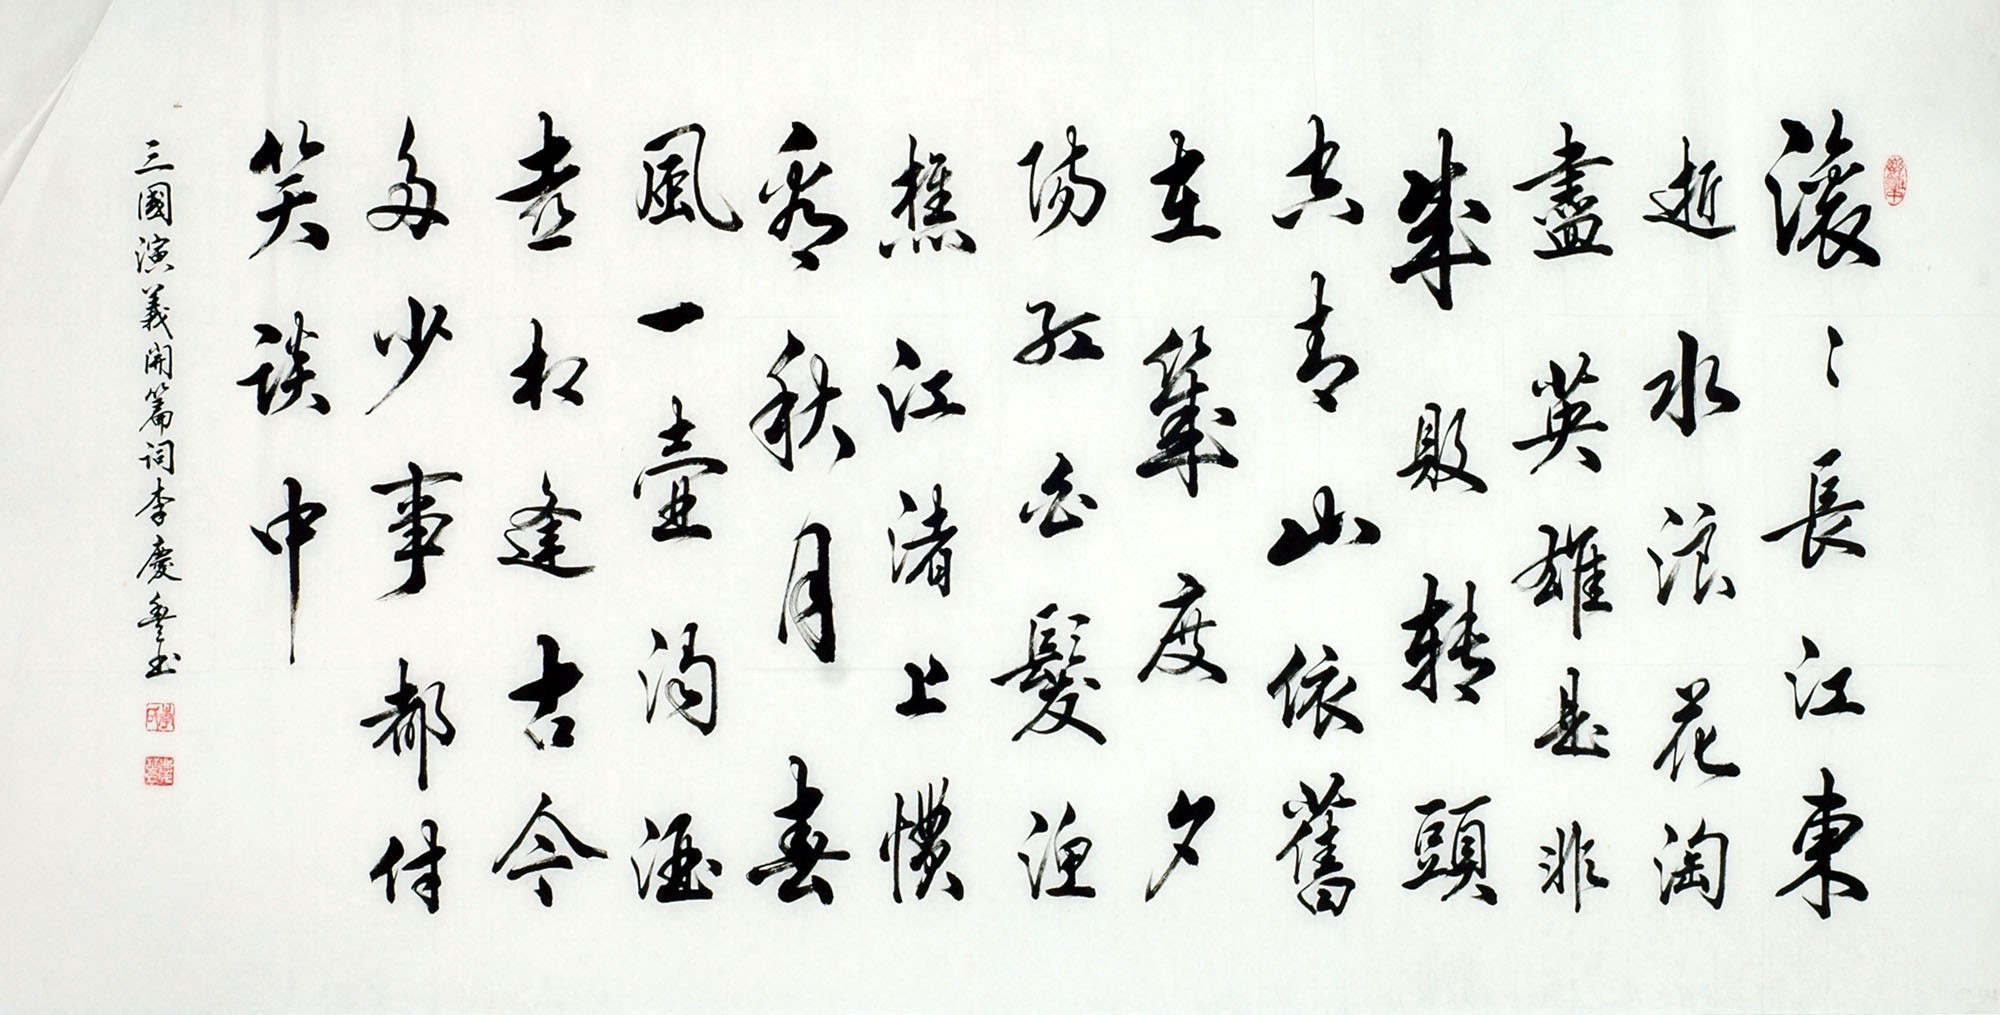 滚〻長江東
逝水浪花淘
盡英雄是非
成敗轉頭
空青山依舊
在幾度夕
陽紅白髮漁
樵江渚上慣
看秋月春
風一壺濁酒
喜相逢古今
多少事都付
笑談中
三國演義開篇詞李慶豐書